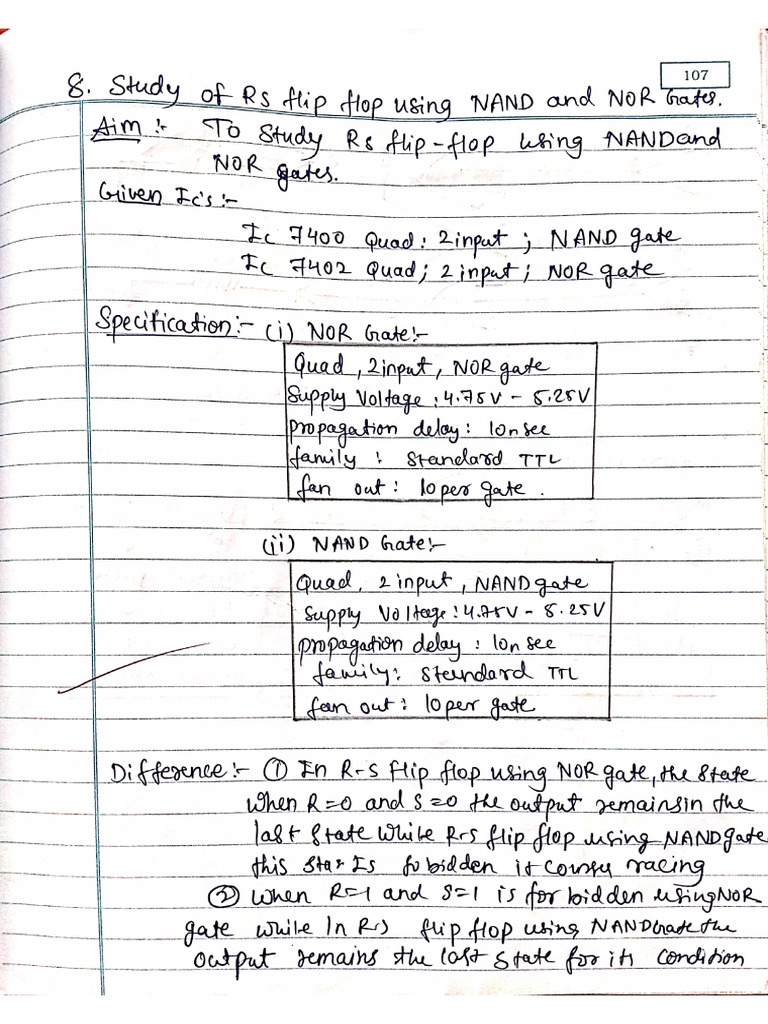 107
8. Study of RS flip flop using NAND and NOR Gates.
Aim :- To Study Rs flip-flop using NAND and
NOR gates.
Given Ic's :-
Ic 7400 Quad: 2 input ; NAND gate
Ic 7402 Quad; 2 input ; NOR gate
Specification:- (i) NOR Gate:-
Quad , 2 input , NOR gate
Supply Voltage : 4.75V - 5.25V
propagation delay : 10n sec
family : Standard TTL
fan out : 10 per gate .
(ii) NAND Gate:-
Quad, 2 input , NAND gate
Supply Voltage : 4.75V - 5.25V
propagation delay : 10n sec
family: Standard TTL
fan out : 10 per gate
Difference:- ① In R-S flip flop using NOR gate, the State
when R=0 and S=0 the output remains in the
last State while R-S flip flop using NAND gate
this Is forbidden it racing
② when R=1 and S=1 is for bidden using NOR
gate while In RS flip flop using NAND Gate the
output remains the last State for its condition